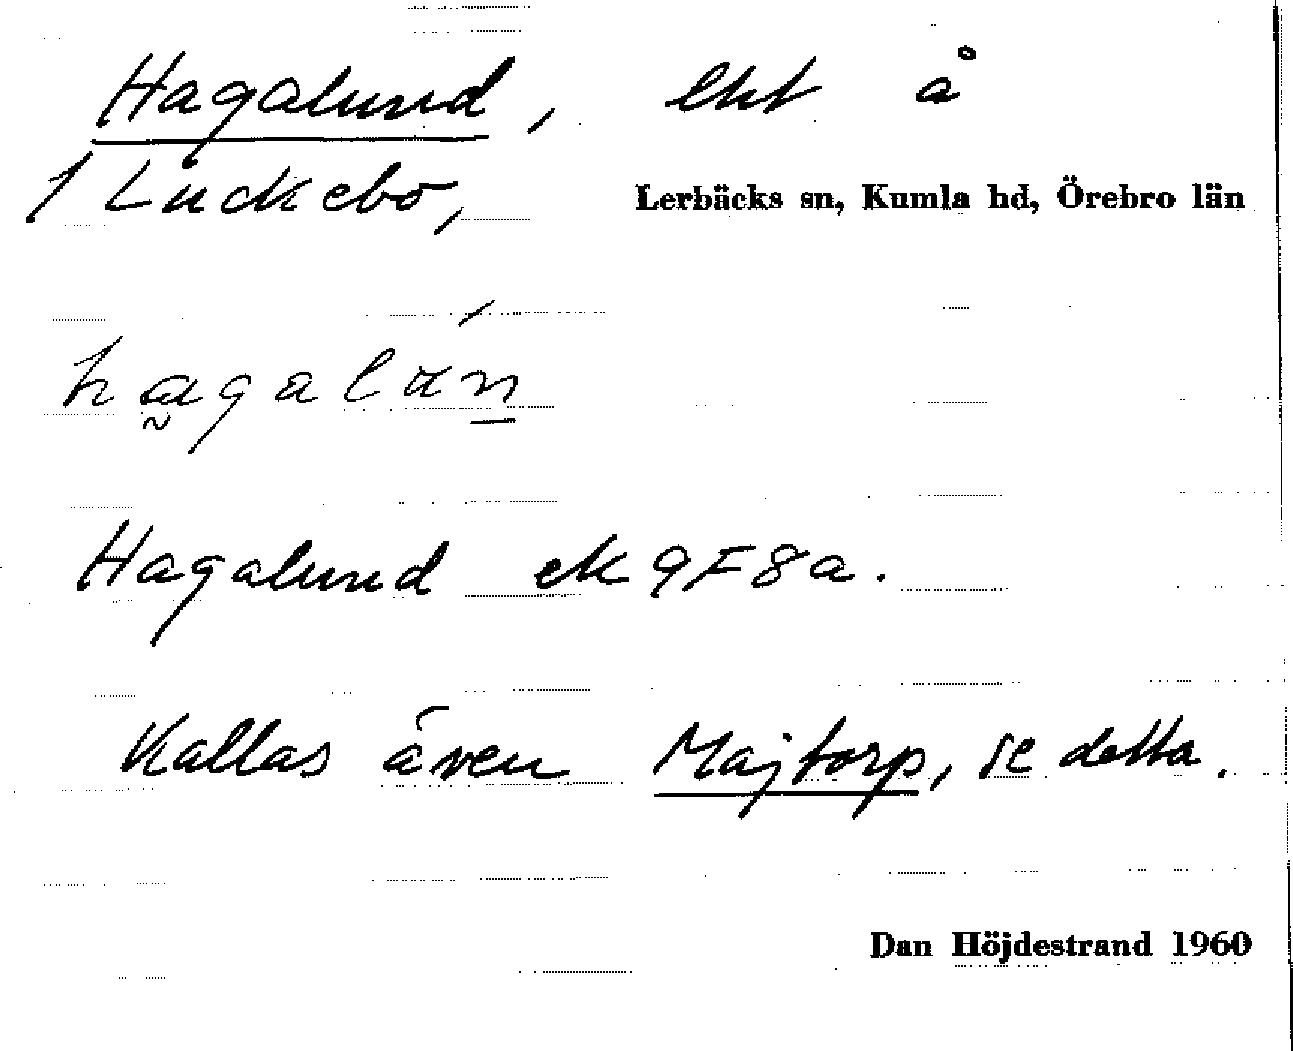 Hagalund, lht å
1 Luckebo, Lerbäcks sn, Kumla hd, Örebro län
hagalún
Hagalund ek 9F8a.
Kallas även Majtorp, se detta.
Dan Höjdestrand 1960